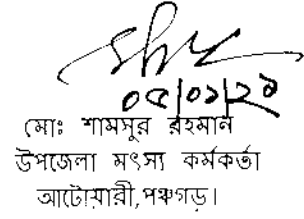 ০৫/০১/২১
মোঃ শামসুর রহমান
উপজেলা মৎস্য কর্মকর্তা
আটোয়ারী,পঞ্চগড়।